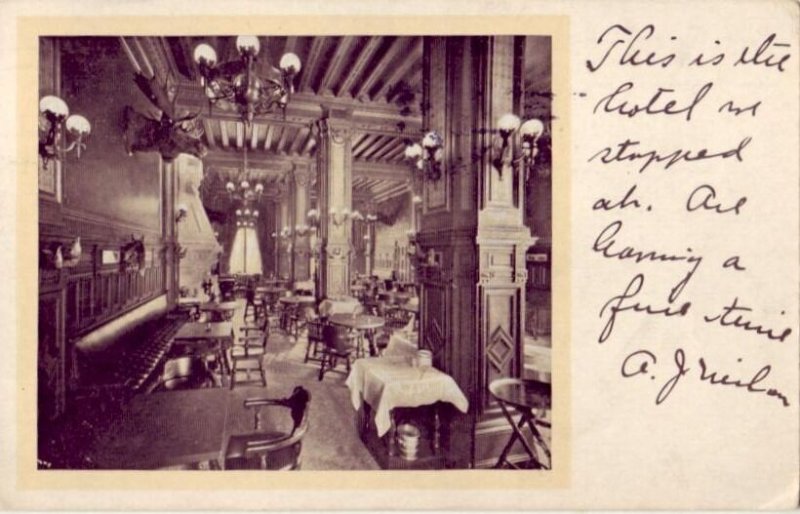 This is the
hotel we
stopped
at. Are
having a
fine time
A. J